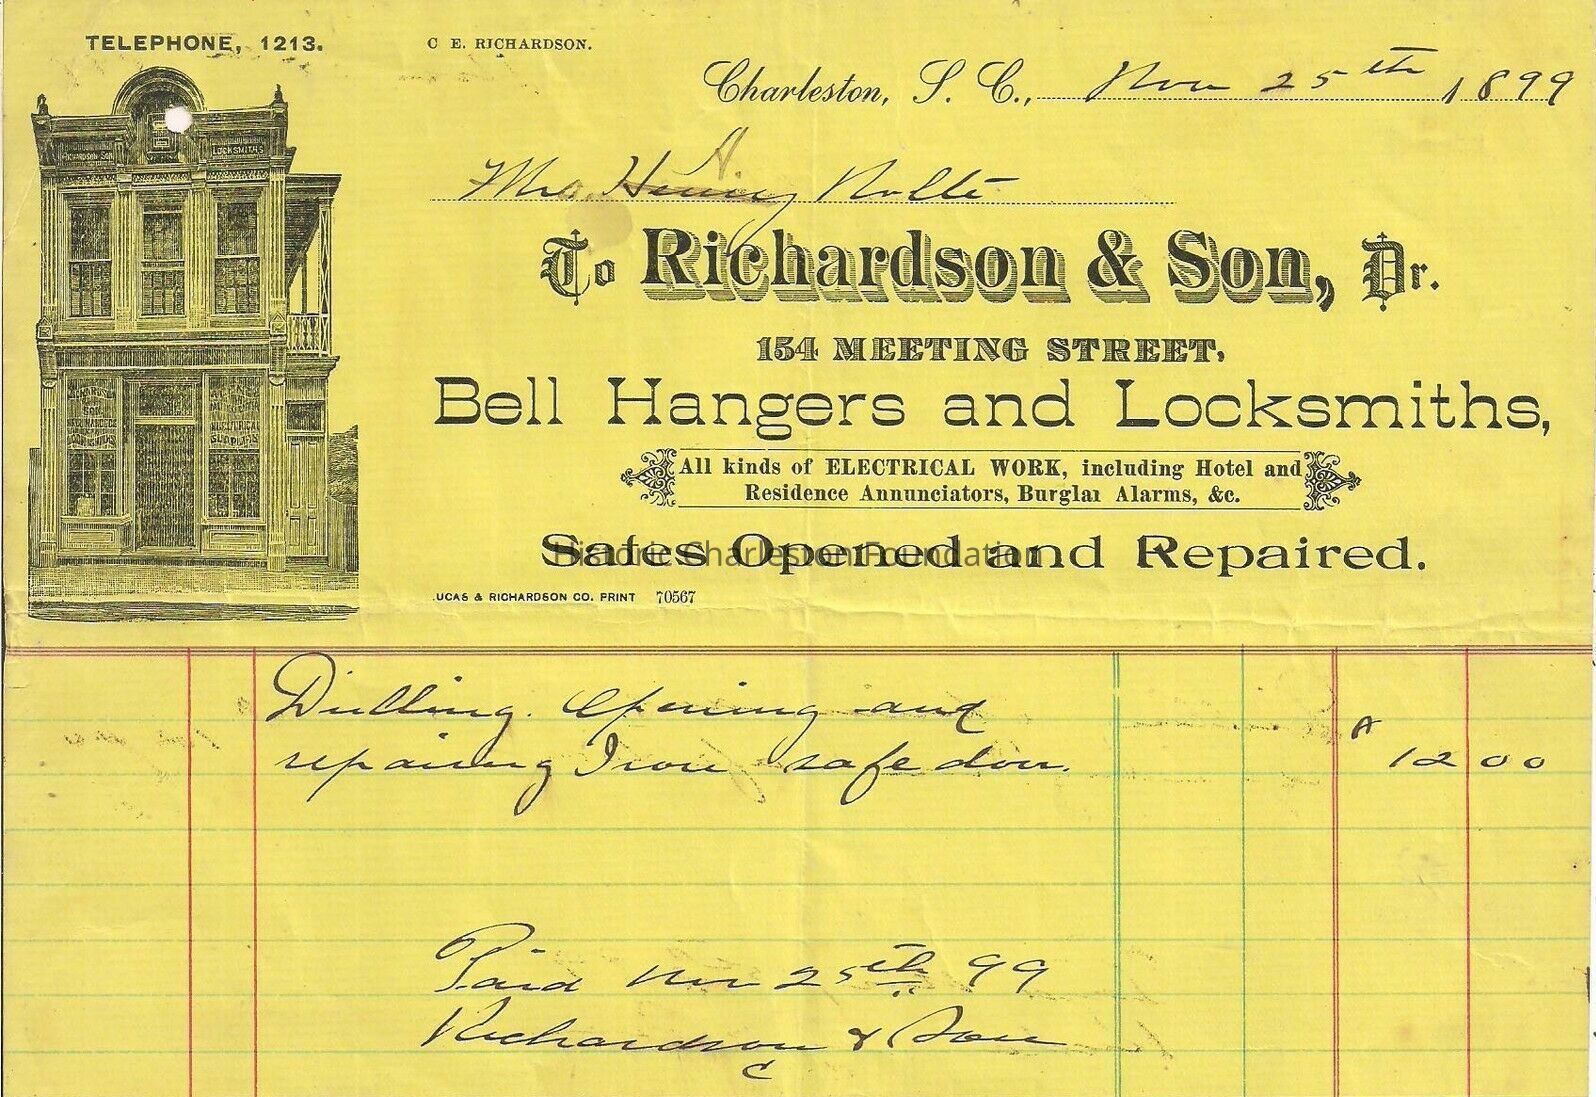 TELEPHONE, 1213.
C E. RICHARDSON.
Charleston, S. C., Nov 25th 1899
Mrs. A Henry Nolte
To Richardson & Son, Dr.
154 MEETING STREET.
Bell Hangers and Locksmiths,
All kinds of ELECTRICAL WORK, including Hotel and
Residence Annunciators, Burglar Alarms, &c.
Safes Opened and Repaired.
Historic Charleston Foundation
UCAS & RICHARDSON CO. PRINT 70567
RICHARDSON SON LOCKSMITHS
RICHARDSON
& SON
LOCKSMITHS
ELECTRICAL
SUPPLIES
Drilling. Opening and
repairing Iron safe door. 12 00
Paid Nov 25th 99
Richardson & Son
C